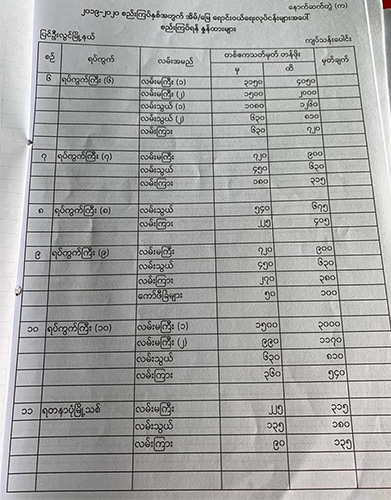 နောက်ဆက်တွဲ (က)
၂၀၁၉-၂၀၂၀ စည်းကြပ်နှစ်အတွက် အိမ်/မြေ ရောင်းဝယ်ရေးလုပ်ငန်းများအပေါ်
စည်းကြပ်ရန် နှုန်းထားများ
ပြင်ဦးလွင်မြို့နယ် ကျပ်သန်းပေါင်း
စဉ် ရပ်ကွက် လမ်းအမည် တစ်ဧကသတ်မှတ် တန်ဖိုး မှတ်ချက်
မှ ထိ
၆ ရပ်ကွက်ကြီး (၆) လမ်းမကြီး (၁) ၃၁၅၀ ၄၀၅၀
လမ်းမကြီး (၂) ၁၅၀၀ ၂၀၀၀
လမ်းသွယ် (၁) ၁၀၈၀ ၁၂၆၀
လမ်းသွယ် (၂) ၆၃၀ ၈၁၀
လမ်းကြား ၆၃၀ ၇၂၀
၇ ရပ်ကွက်ကြီး (၇) လမ်းမကြီး ၇၂၀ ၉၀၀
လမ်းသွယ် ၄၅၀ ၆၃၀
လမ်းကြား ၁၈၀ ၃၁၅
၈ ရပ်ကွက်ကြီး (၈) လမ်းသွယ် ၅၄၀ ၆၇၅
လမ်းကြား ၂၂၅ ၄၀၅
၉ ရပ်ကွက်ကြီး (၉) လမ်းမကြီး ၇၂၀ ၉၀၀
လမ်းသွယ် ၄၅၀ ၆၃၀
လမ်းကြား ၂၇၀ ၃၈၀
ကော်ဖီခြံများ ၅၀ ၁၀၀
၁၀ ရပ်ကွက်ကြီး (၁၀) လမ်းမကြီး (၁) ၁၅၀၀ ၃၀၀၀
လမ်းမကြီး (၂) ၉၉၀ ၁၁၇၀
လမ်းသွယ် ၆၃၀ ၈၁၀
လမ်းကြား ၃၆၀ ၅၄၀
၁၁ ရတနာပုံမြို့သစ် လမ်းမကြီး ၂၂၅ ၃၁၅
လမ်းသွယ် ၁၃၅ ၁၈၀
လမ်းကြား ၉၀ ၁၃၅